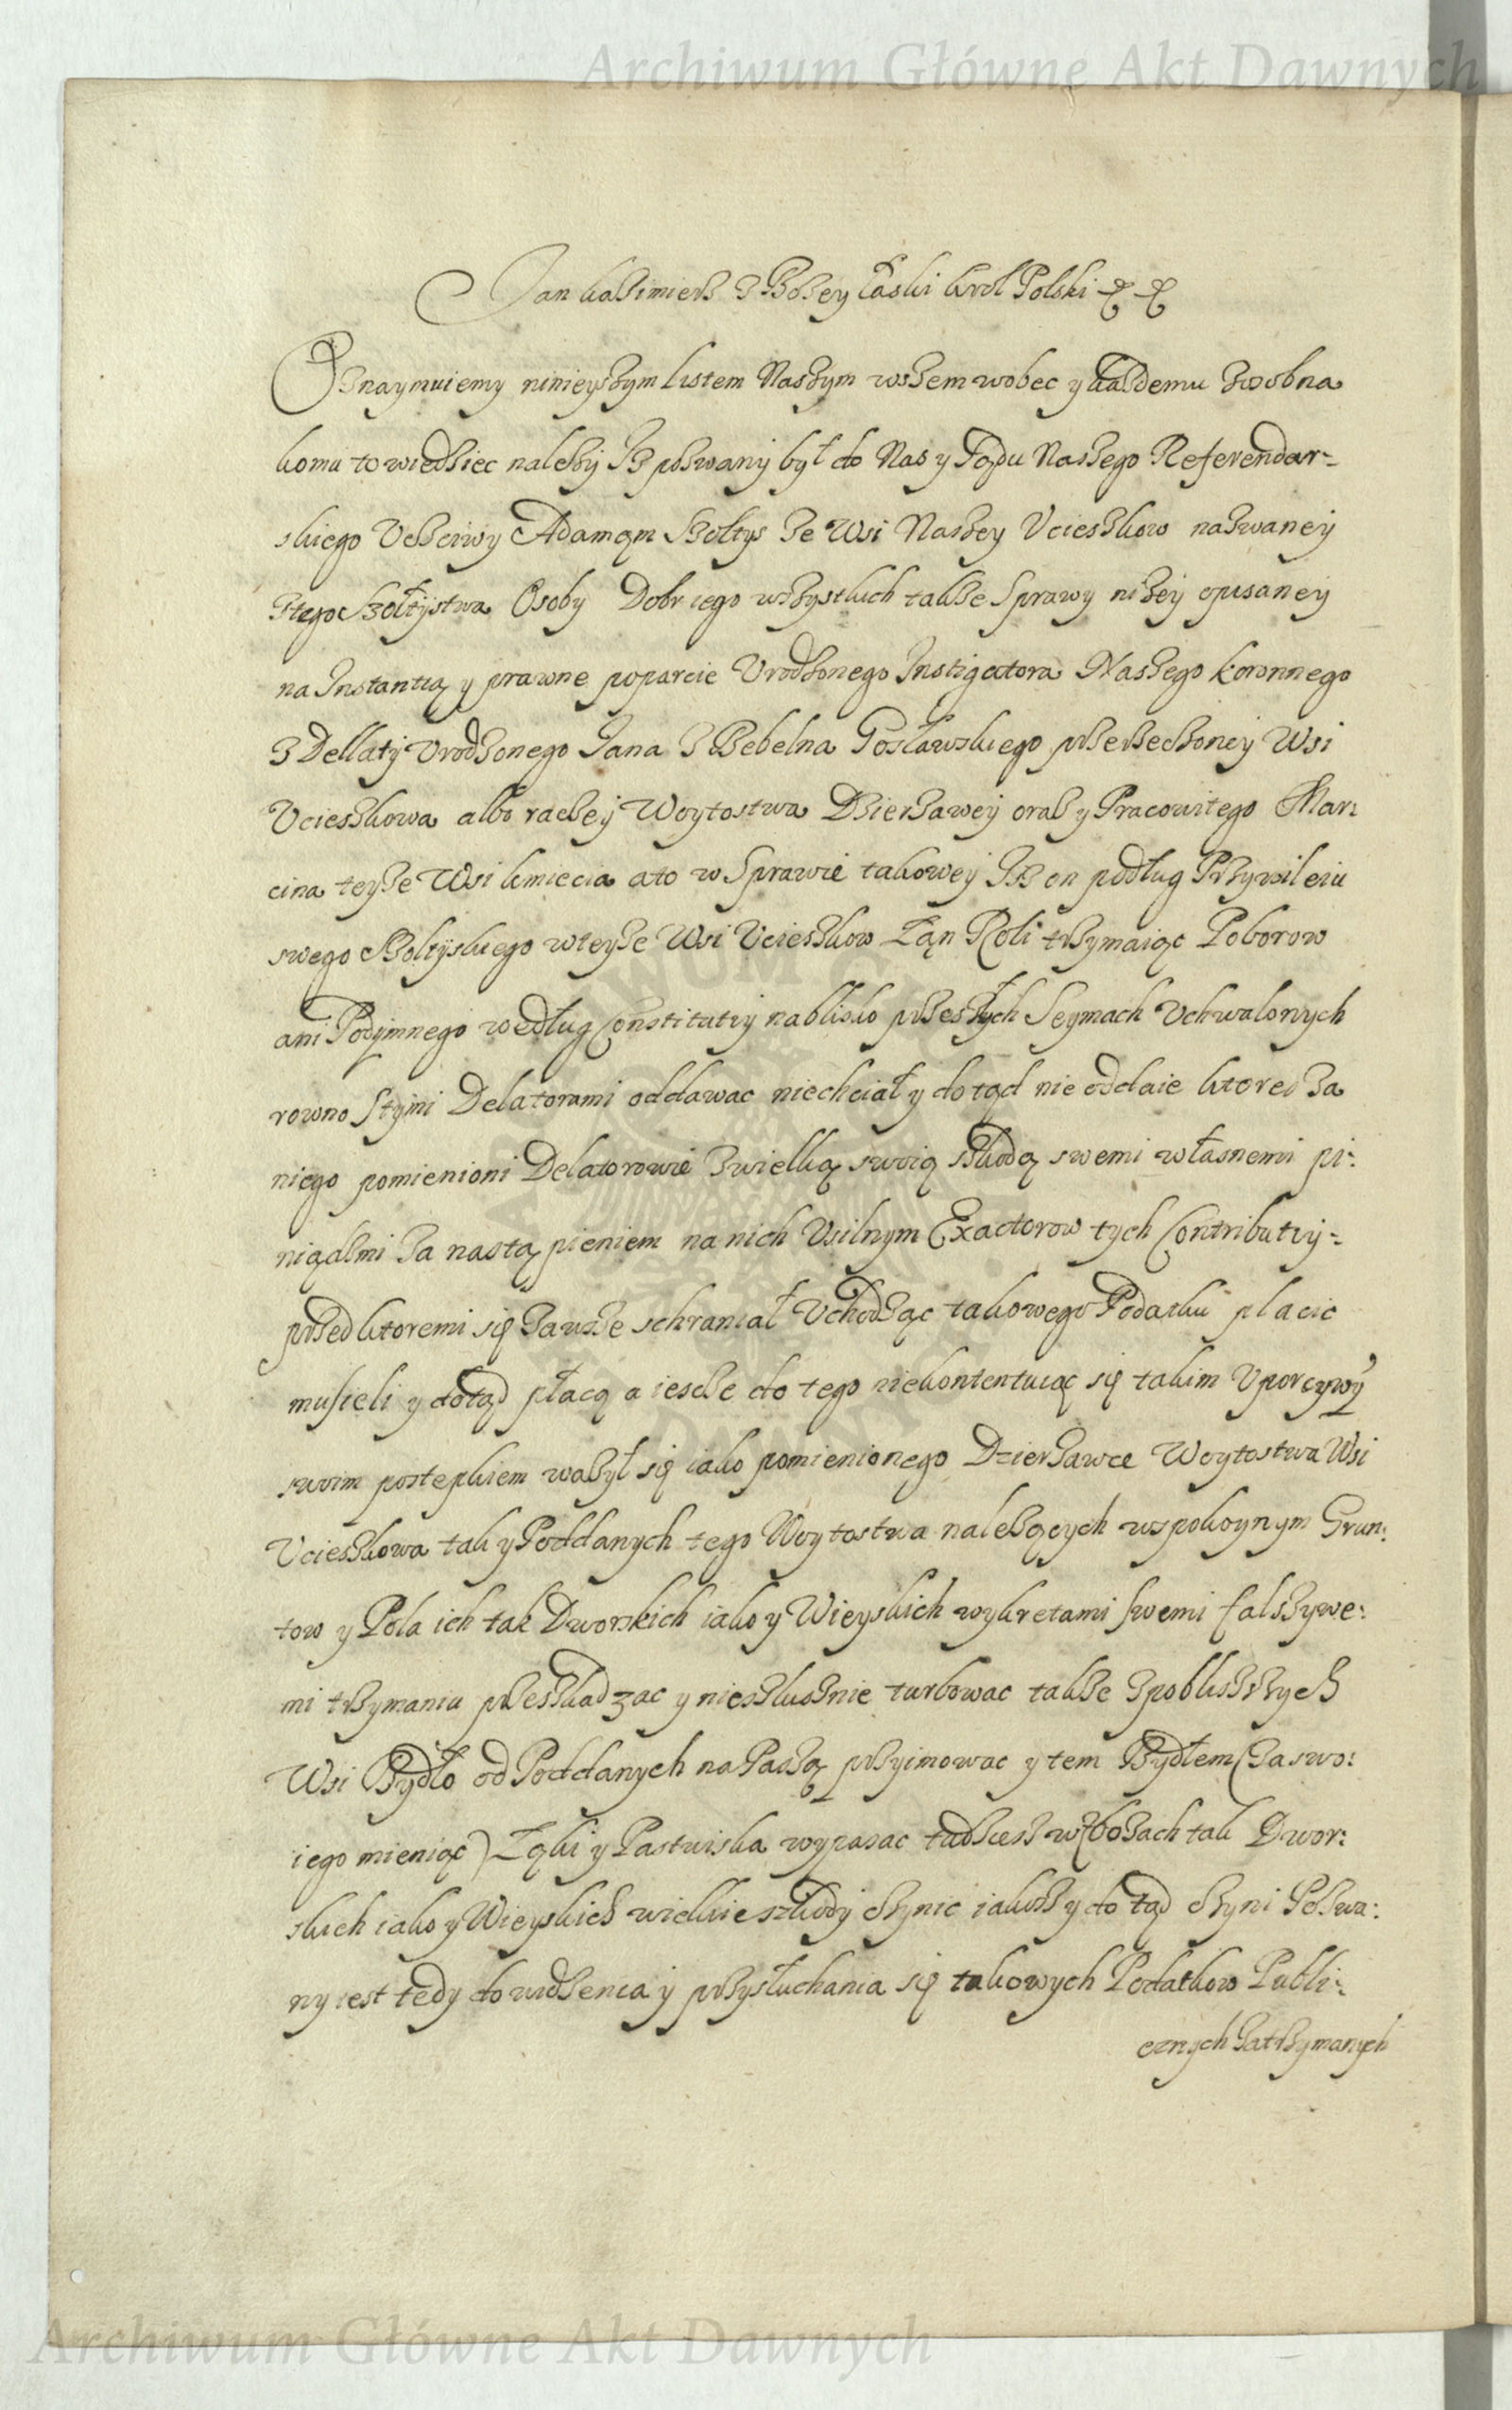 Archiwum Główne Akt Dawnych
Jan Kazimierz z Bozey Łaski Krol Polski
Oznaymuiemy ninieyszym Listem Naszym wszem wobec y kazdemu zosobna
komu to wiedziec nalezy Jz pozwany był do Nas y Sądu Naszego Referendar=
skiego Vczciwy Szołtys ze Wsi Naszey Vcieszkow nazwaney
ztego Szołtystwa Osoby Dobr iego wszystkich takze Sprawy nizey opisaney
na Instantią y prawne poparcie Vrodzonego Instigatora Naszego Koronnego
z Dellaty Vrodzonego Jana z Bebelna Gosławskiego przerzeczoney Wsi
Vcieszkowa albo raczey Woytostwa Dzierzawcy oraz y Pracowitego Mar:
cina teyze Wsi kmiecia ato w Sprawie takowey Jz on podług Przywileiu
swego Szołtyskiego wteyze Wsi Vcieszkow Łąn Roli trzymaiąc Poborow
ani Podymnego według Constitutiy nablisko przeszłych Seymach Vchwalonych
rowno stymi Delatorami oddawac niechciał y dotąd nie oddaie ktore za
niego pomienioni Delatorowie zwielką swoią szkodą swemi własnemi pi:
niądzmi za nastąpieniem na nich Vsilnym Exactorow tych Contributiy=
przed ktoremi się zawsze schraniał Vchodząc takowego Podatku płacic
musieli y dotąd płacą a iescze do tego niekontentuiąc się takim Vporczywy
swoim postepkiem wazył się iako pomienionego Dzierzawce Woytostwa Wsi
Vcieszkowa tak y Poddanych tego Woytostwa nalezących wspokoynym Grun:
tow y Pola ich tak Dworskich iako y Wieyskich wykretami swemi falszywe:
mi trzymaniu przeszkadzac y niesłusznie turbowac takze zpobliszszych
Wsi Bydło od Poddanych na Paszą przyimowac y tem Bydłem (za swo:
iego mieniąc) Łąki y Pastwiska wypasac tudziesz wZbozach tak Dwor:
skich iako y Wieyskich wielkie szkody czynic iakosz y do tąd czyni Pozwa:
ny iest tedy do widzenia y przysłuchania się takowych Podatkow Publi:
cznych zatrzymanych
Archiwum Główne Akt Dawnych